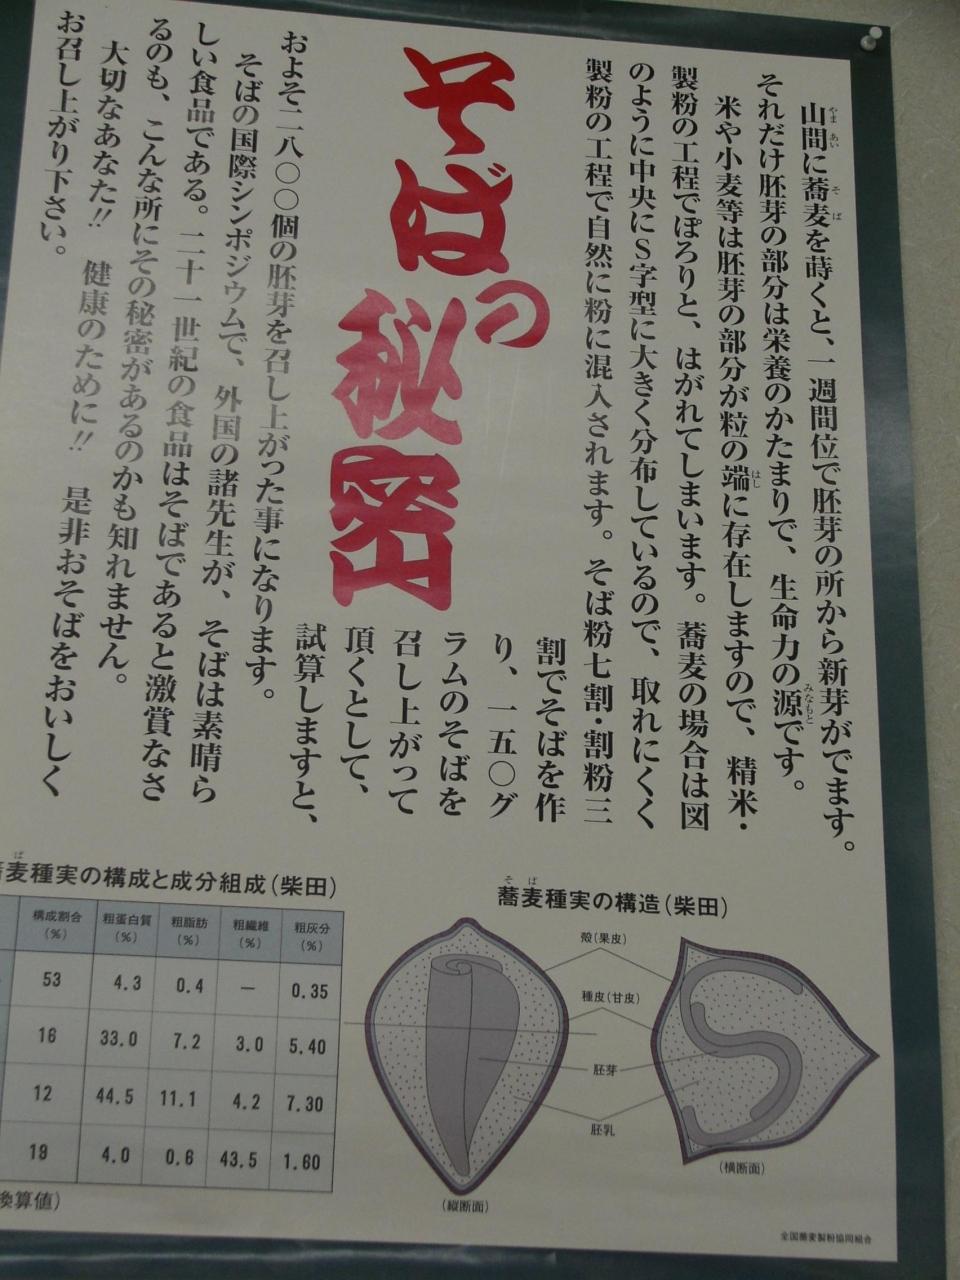 そばの秘密
山間に蕎麦を蒔くと、一週間位で胚芽の所から新芽がでます。
それだけ胚芽の部分は栄養のかたまりで、生命力の源です。
米や小麦等は胚芽の部分が粒の端に存在しますので、精米・
製粉の工程でぽろりと、はがれてしまいます。蕎麦の場合は図
のように中央にS字型に大きく分布しているので、取れにくく
製粉の工程で自然に粉に混入されます。そば粉七割・割粉三
割でそばを作
り、一五〇グ
ラムのそばを
召し上がって
頂くとして、
試算しますと、
およそ二八〇〇個の胚芽を召し上がった事になります。
そばの国際シンポジウムで、外国の諸先生が、そばは素晴ら
しい食品である。二十一世紀の食品はそばであると激賞なさ
るのも、こんな所にその秘密があるのかも知れません。
大切なあなた!! 健康のために!! 是非おそばをおいしく
お召し上がり下さい。
麦種実の構成と成分組成(柴田)
構成割合(%) 粗蛋白質(%) 粗脂肪(%) 粗繊維(%) 粗灰分(%)
53 4.3 0.4 — 0.35
16 33.0 7.2 3.0 5.40
12 44.5 11.1 4.2 7.30
19 4.0 0.6 43.5 1.60
換算値)
蕎麦種実の構造(柴田)
殻(果皮)
種皮(甘皮)
胚芽
胚乳
(縦断面)
(横断面)
全国蕎麦製粉協同組合